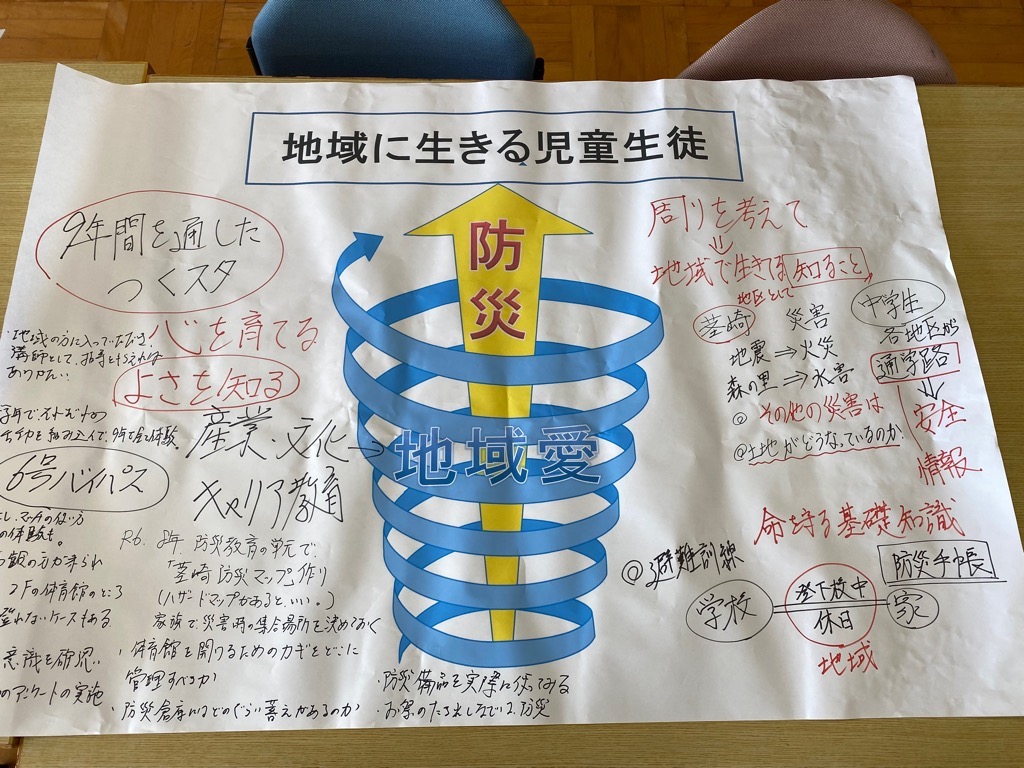 地域に生きる児童生徒
防災
地域愛
9年間を通した
つくスタ
・地域の方に入っていただき、
講師として、お話をもらえれば
ありがたい。
心を育てる
よさを知る
産業・文化→
キャリア教育
6号バイパス
の体験も。
2Fの体育館のところ
登れないケースもある
意識を確認
のアンケートの実施
R6. 8年 防災教育の単元で
「茎崎防災マップ」作り
(ハザードマップがあるといい。)
家族で災害時の集合場所を決めておく
・体育館を開けるためのカギをどこに
管理すべきか
・防災倉庫にはどのぐらい蓄えがあるのか
・防災備品を実際に使ってみる
周りを考えて
⇓
地域で生きる知ること
地区として
茎崎 災害
地震⇒火災
森の里⇒水害
◎その他の災害は
@土地がどうなっているのか.
中学生
各地区が
通学路
⇓
安全
情報
命を守る基礎知識
◎避難訓練
防災手帳
学校 登下校中 家
休日
地域